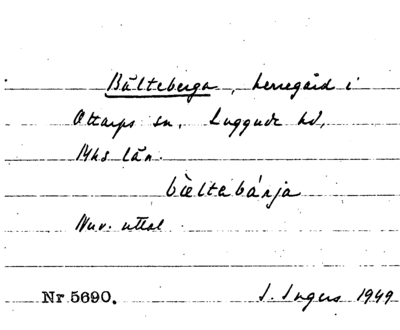 Bälteberga, herregård i
Ottarps sn, Luggude hd,
Mhs län.
bèltabánja
Nuv. uttal
Nr 5690.
I. Ingers 1949